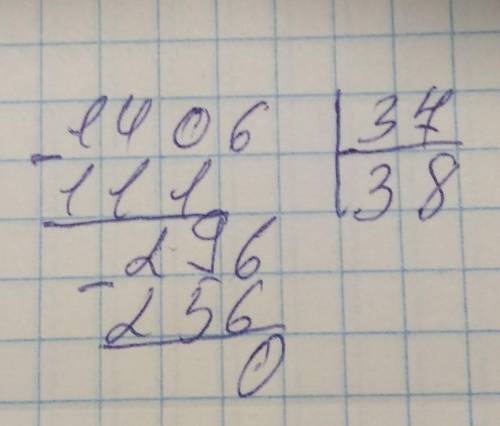 1406 | 37
- 111 | 38
296
- 256
0